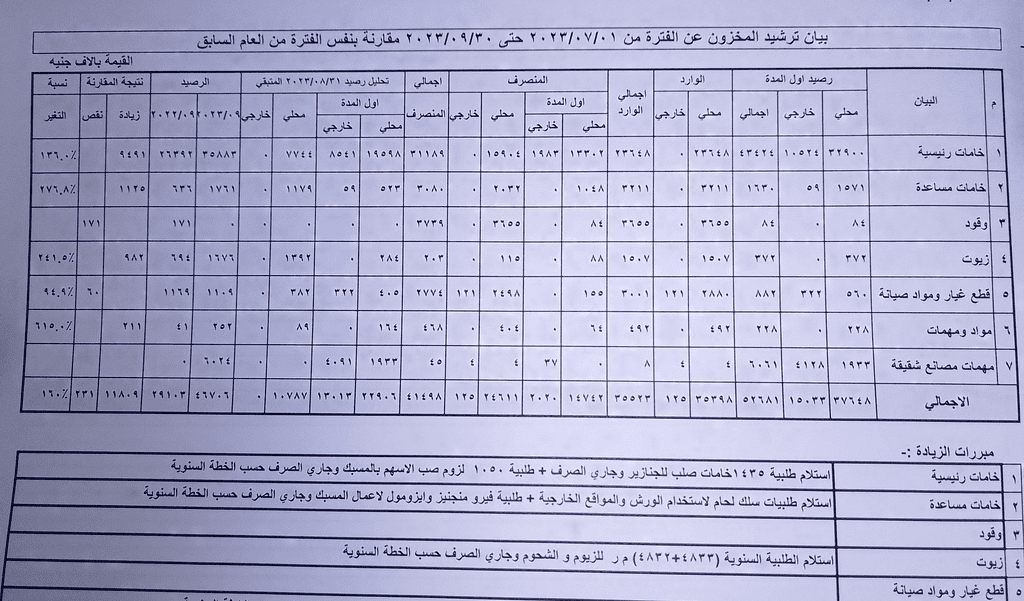 بيان ترشيد المخزون عن الفترة من ٢٠٢٣/٠٧/٠١ حتى ٢٠٢٣/٠٩/٣٠ مقارنة بنفس الفترة من العام السابق
القيمة بالاف جنيه
م البيان رصيد اول المدة الوارد اجمالي الوارد المنصرف اجمالي المنصرف تحليل رصيد ٢٠٢٣/٠٨/٣١ المتبقي الرصيد نتيجة المقارنة نسبة التغير
محلي خارجي اجمالي محلي خارجي اول المدة محلي خارجي اول المدة محلي خارجي ٢٠٢٣/٠٩ ٢٠٢٢/٠٩ زيادة نقص
محلي خارجي محلي خارجي
١ خامات رئيسية ٣٢٩٠٠ ١٠٥٢٤ ٤٣٤٢٤ ٢٣٦٤٨ ٠ ٢٣٦٤٨ ١٣٣٠٢ ١٩٨٣ ١٥٩٠٤ ٠ ٣١١٨٩ ١٩٥٩٨ ٨٥٤١ ٧٧٤٤ ٠ ٣٥٨٨٣ ٢٦٣٩٢ ٩٤٩١ ١٣٦.٠٪
٢ خامات مساعدة ١٥٧١ ٥٩ ١٦٣٠ ٣٢١١ ٠ ٣٢١١ ١٠٤٨ ٠ ٢٠٣٢ ٠ ٣٠٨٠ ٥٢٣ ٥٩ ١١٧٩ ٠ ١٧٦١ ٦٣٦ ١١٢٥ ٢٧٦.٨٪
٣ وقود ٨٤ ٠ ٨٤ ٣٦٥٥ ٠ ٣٦٥٥ ٨٤ ٠ ٣٦٥٥ ٠ ٣٧٣٩ ٠ ٠ ٠ ٠ ٠ ١٧١ ١٧١
٤ زيوت ٣٧٢ ٠ ٣٧٢ ١٥٠٧ ٠ ١٥٠٧ ٨٨ ٠ ١١٥ ٠ ٢٠٣ ٢٨٤ ٠ ١٣٩٢ ٠ ١٦٧٦ ٦٩٤ ٩٨٢ ٢٤١.٥٪
٥ قطع غيار ومواد صيانة ٥٦٠ ٣٢٢ ٨٨٢ ٢٨٨٠ ١٢١ ٣٠٠١ ١٥٥ ٠ ٢٤٩٨ ١٢١ ٢٧٧٤ ٤٠٥ ٣٢٢ ٣٨٢ ٠ ١١٠٩ ١١٦٩ ٦٠ ٩٤.٩٪
٦ مواد ومهمات ٢٢٨ ٠ ٢٢٨ ٤٩٢ ٠ ٤٩٢ ٦٤ ٠ ٤٠٤ ٠ ٤٦٨ ١٦٤ ٠ ٨٩ ٠ ٢٥٢ ٤١ ٢١١ ٦١٥.٠٪
٧ مهمات مصانع شقيقة ١٩٣٣ ٤١٢٨ ٦٠٦١ ٤ ٤ ٨ ٠ ٣٧ ٤ ٤ ٤٥ ١٩٣٣ ٤٠٩١ ٠ ٠ ٦٠٢٤ ٠
الاجمالي ٣٧٦٤٨ ١٥٠٣٣ ٥٢٦٨١ ٣٥٣٩٨ ١٢٥ ٣٥٥٢٣ ١٤٧٤٢ ٢٠٢٠ ٢٤٦١١ ١٢٥ ٤١٤٩٨ ٢٢٩٠٦ ١٣٠١٣ ١٠٧٨٧ ٠ ٤٦٧٠٦ ٢٩١٠٣ ١١٨٠٩ ٢٣١ ١٦٠٪
مبررات الزيادة :-
١ خامات رئيسية استلام طلبية ١٤٣٥ خامات صلب للجنازير وجاري الصرف + طلبية ١٠٥٠ لزوم صب الاسهم بالمسبك وجاري الصرف حسب الخطة السنوية
٢ خامات مساعدة استلام طلبيات سلك لحام لاستخدام الورش والمواقع الخارجية + طلبية فيرو منجنيز وايزومول لاعمال المسبك وجاري الصرف حسب الخطة السنوية
٣ وقود
٤ زيوت استلام الطلبية السنوية (٤٨٣٣+٤٨٣٢) م ر للزيوم و الشحوم وجاري الصرف حسب الخطة السنوية
٥ قطع غيار ومواد صيانة